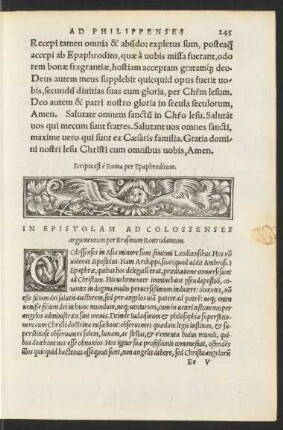 AD PHILIPPENSES 245
Recepi tamen omnia & abūdo: expletus sum, posteaq̃
accepi ab Epaphrodito, quæ à uobis missa fuerant, odo
rem bonæ fragrantiæ, hostiam acceptam gratamq; deo.
Deus autem meus supplebit quicquid opus fuerit uo-
bis, secundū diuitias suas cum gloria, per Chr̃m Iesum.
Deo autem & patri nostro gloria in secula seculorum,
Amen. Salutate omnem sanctū in Chr̃o Iesu. Salutāt
uos qui mecum sunt fratres. Salutant uos omnes sancti,
maxime uero qui sunt ex Cæsaris familia. Gratia domi
ni nostri Iesu Christi cum omnibus uobis, Amen.
Scripta est è Roma per Epaphroditum.
IN EPISTOLAM AD COLOSSENSES
argumentum per Erasmum Roterodamum.
COlossenses in Asia minore sunt, finitimi Laodicensibus. Hos nō
uiderat Apostolus. Nam Archippi, siue (quod addit Ambros.)
Epaphræ, quibus hoc delegatū erat, prædicatione conuersi sunt
ad Christum. Hi tamen imminebant pseudapostoli,
conantes in dogma multo perniciosissimum inducere: docentes, nō
esse filium dei salutis auctorem, sed per angelos uiā patere ad patrē: neq; enim
uenisse filium dei in hunc mundum, neq; uenturum, cum in ueteri testamento omnia per
angelos administrata sint omnia. Deinde Iudaismum & philosophiæ superstitio-
nem cum Christi doctrina miscebant: obseruantes quædam legis instituta, & su-
perstitiose obseruantes solem, lunam, ac stellas, & elementa huius mundi, qui-
bus docebant nos esse obnoxios. Hos igitur suæ professionis commonefacit, ostendēs
illos quicquid hactenus assequuti sunt, non angelis debere, sed Christo angelorū
Ee V